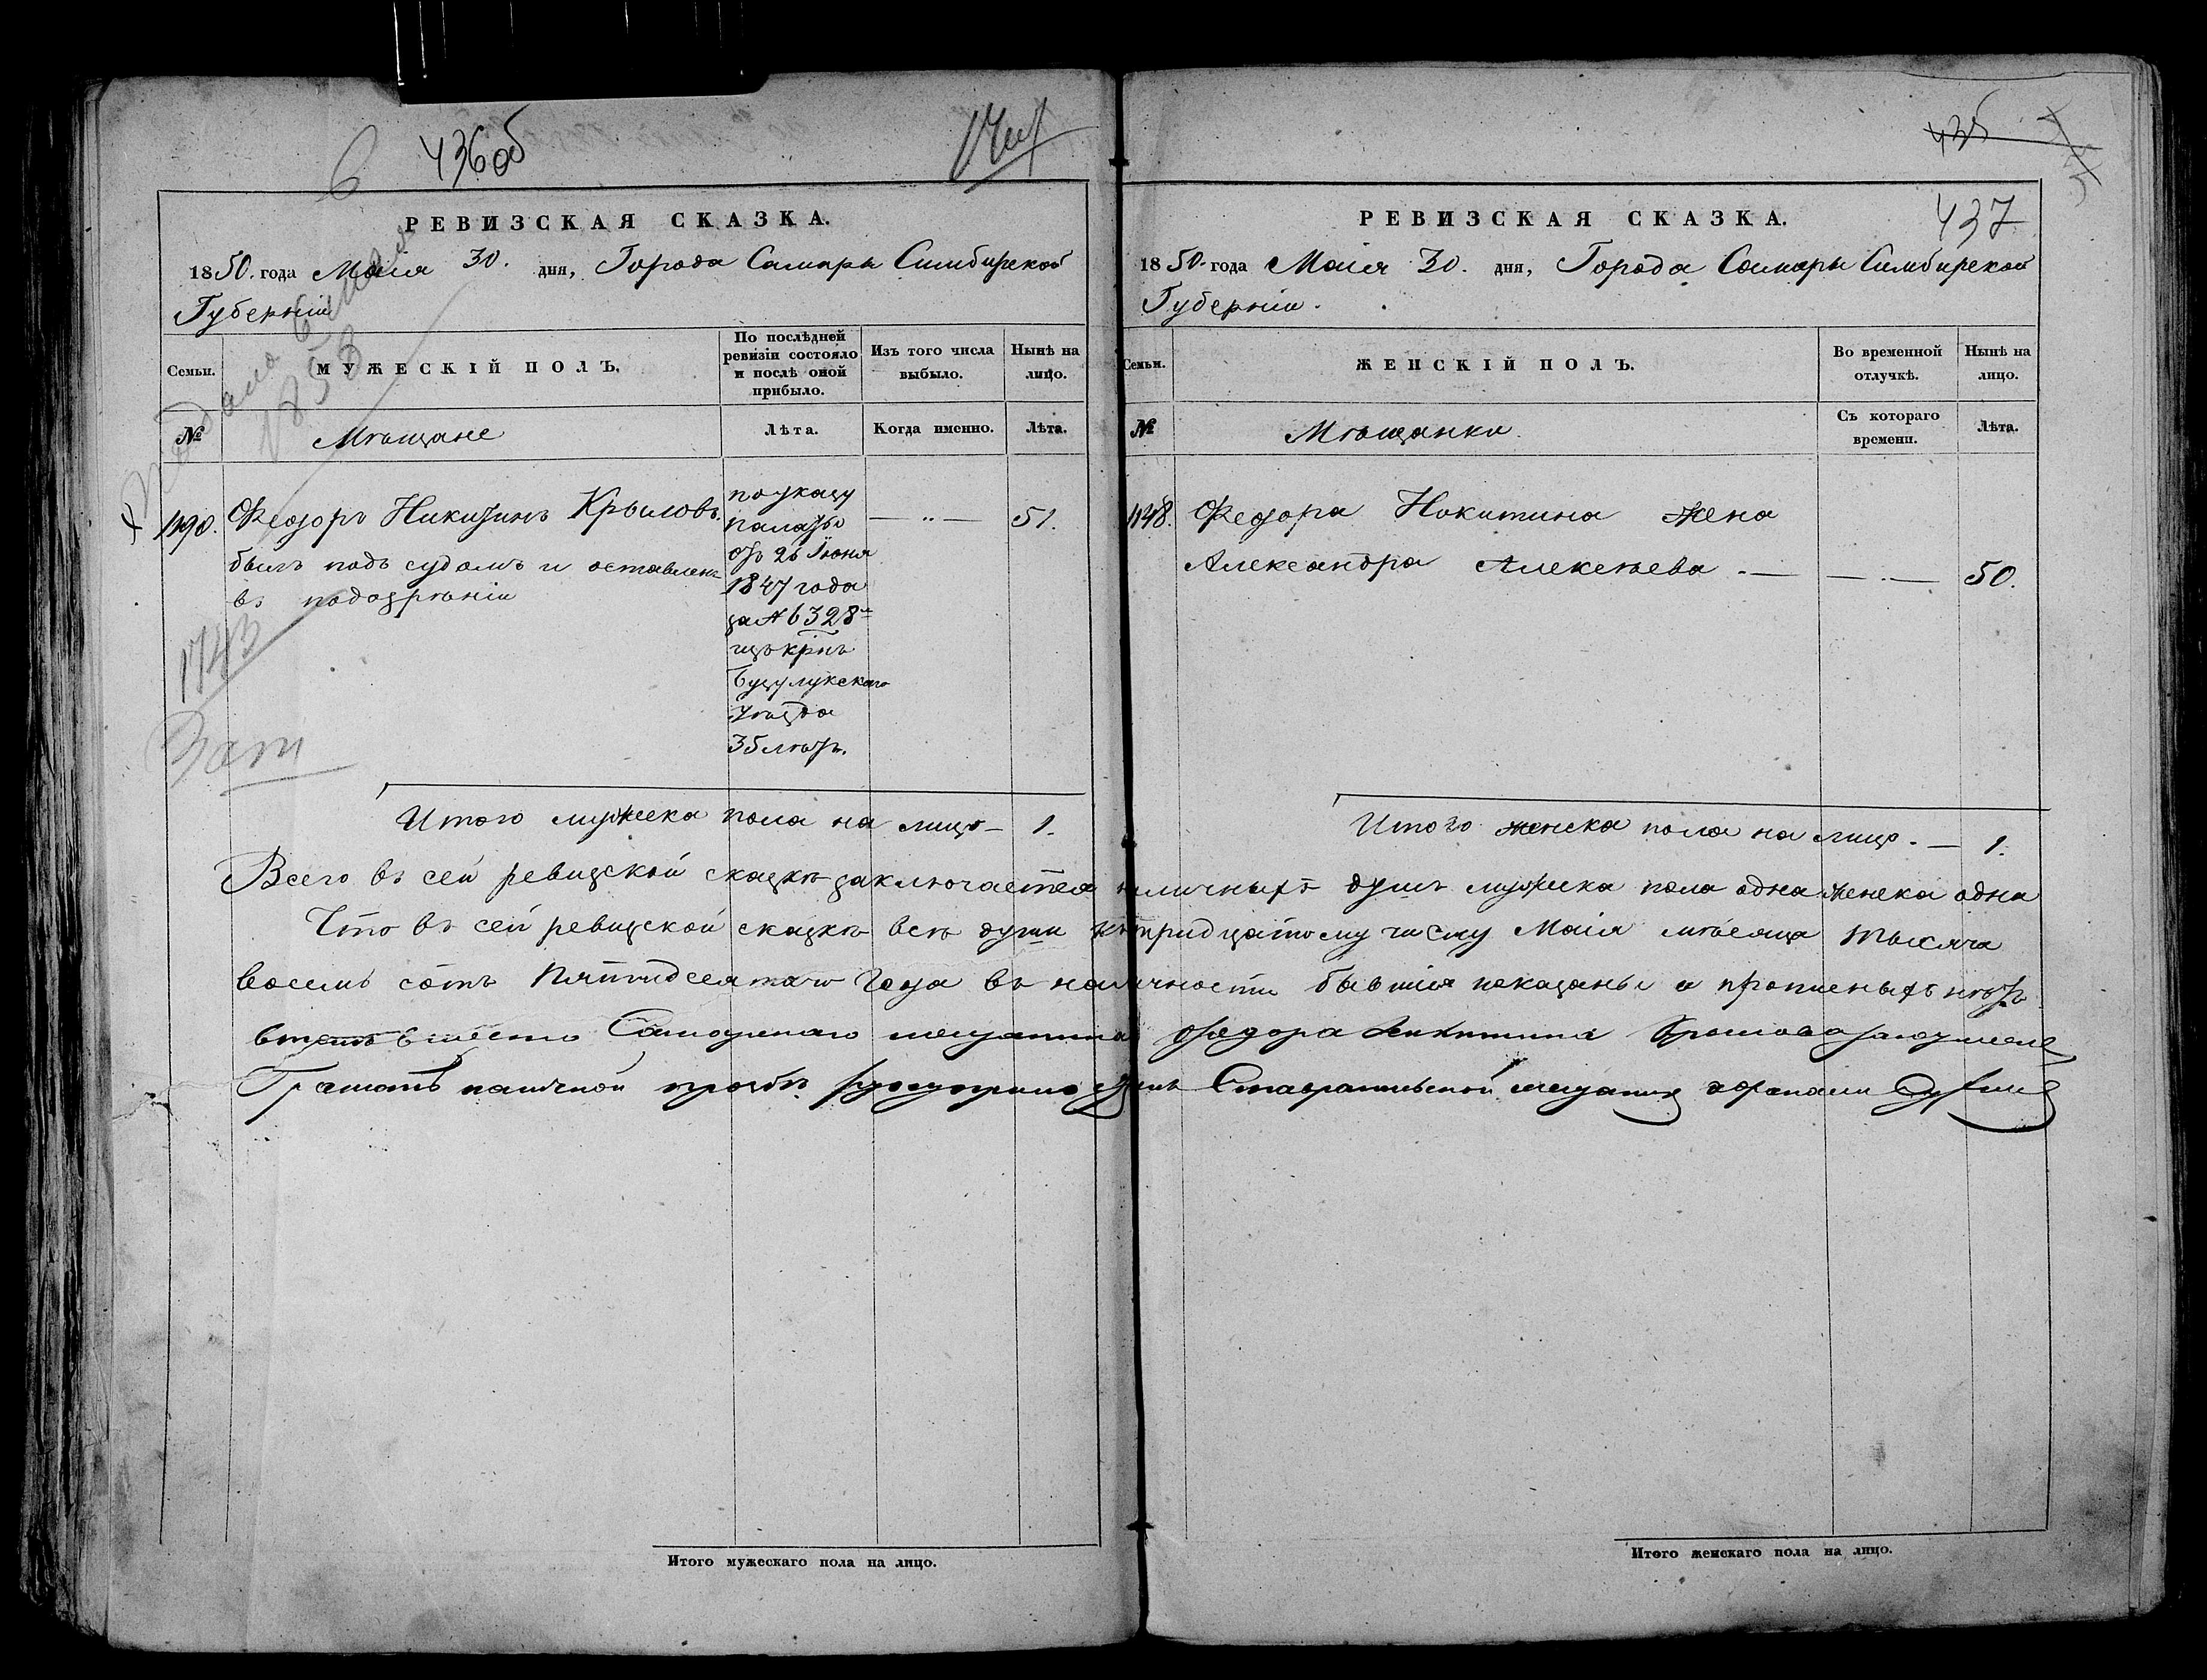 6
436об
РЕВИЗСКАЯ СКАЗКА.
1850. года Маія 30. дня, Города Самары Симбирской
Губерніи
Семьи.
МУЖЕСКІЙ ПОЛЪ.
По послѣдней
ревизіи состояло
и послѣ оной
прибыло.
Изъ того числа
выбыло.
Нынѣ на
лицо.
№
Мѣщане
Лѣта.
Когда именно.
Лѣта.
Подано 6
1853
Федоръ Никитинъ Крыловъ.
былъ подъ судомъ и оставленъ
въ подозрѣніи
по указу
палаты
отъ 26 Іюня
1847 года
за № 6328м
изъ крнъ
Бузулукскаго
Уѣзда
35 лѣтъ.
51.
1743
Итого мужеска пола на лицо — 1.
РЕВИЗСКАЯ СКАЗКА.
437
1850. года Маія 30. дня, Города Самары Симбирской
Губерніи.
Семьи.
ЖЕНСКІЙ ПОЛЪ.
Во временной
отлучкѣ.
Нынѣ на
лицо.
№
Мѣщанки.
Съ котораго
времени.
Лѣта.
1148. Федора Никитина жена
Александра Алексѣева. — — 50.
Итого женска пола на лицо. — 1.
Всего въ сей ревизской сказкѣ заключается наличныхъ душъ мужеска пола одна женска одна
Что въ сей ревизской сказкѣ всѣ души къ тридцатому числу Маія мѣсяца тысяча
восемь сотъ пятидесятаго года въ наличности бывшія показаны и прописныхъ нѣтъ
вмѣсто Самарскаго мещанина Федора Никитина Крылова
Грамотѣ наличной прозбѣ Ставропольской мещанин
Итого мужескаго пола на лицо.
Итого женскаго пола на лицо.